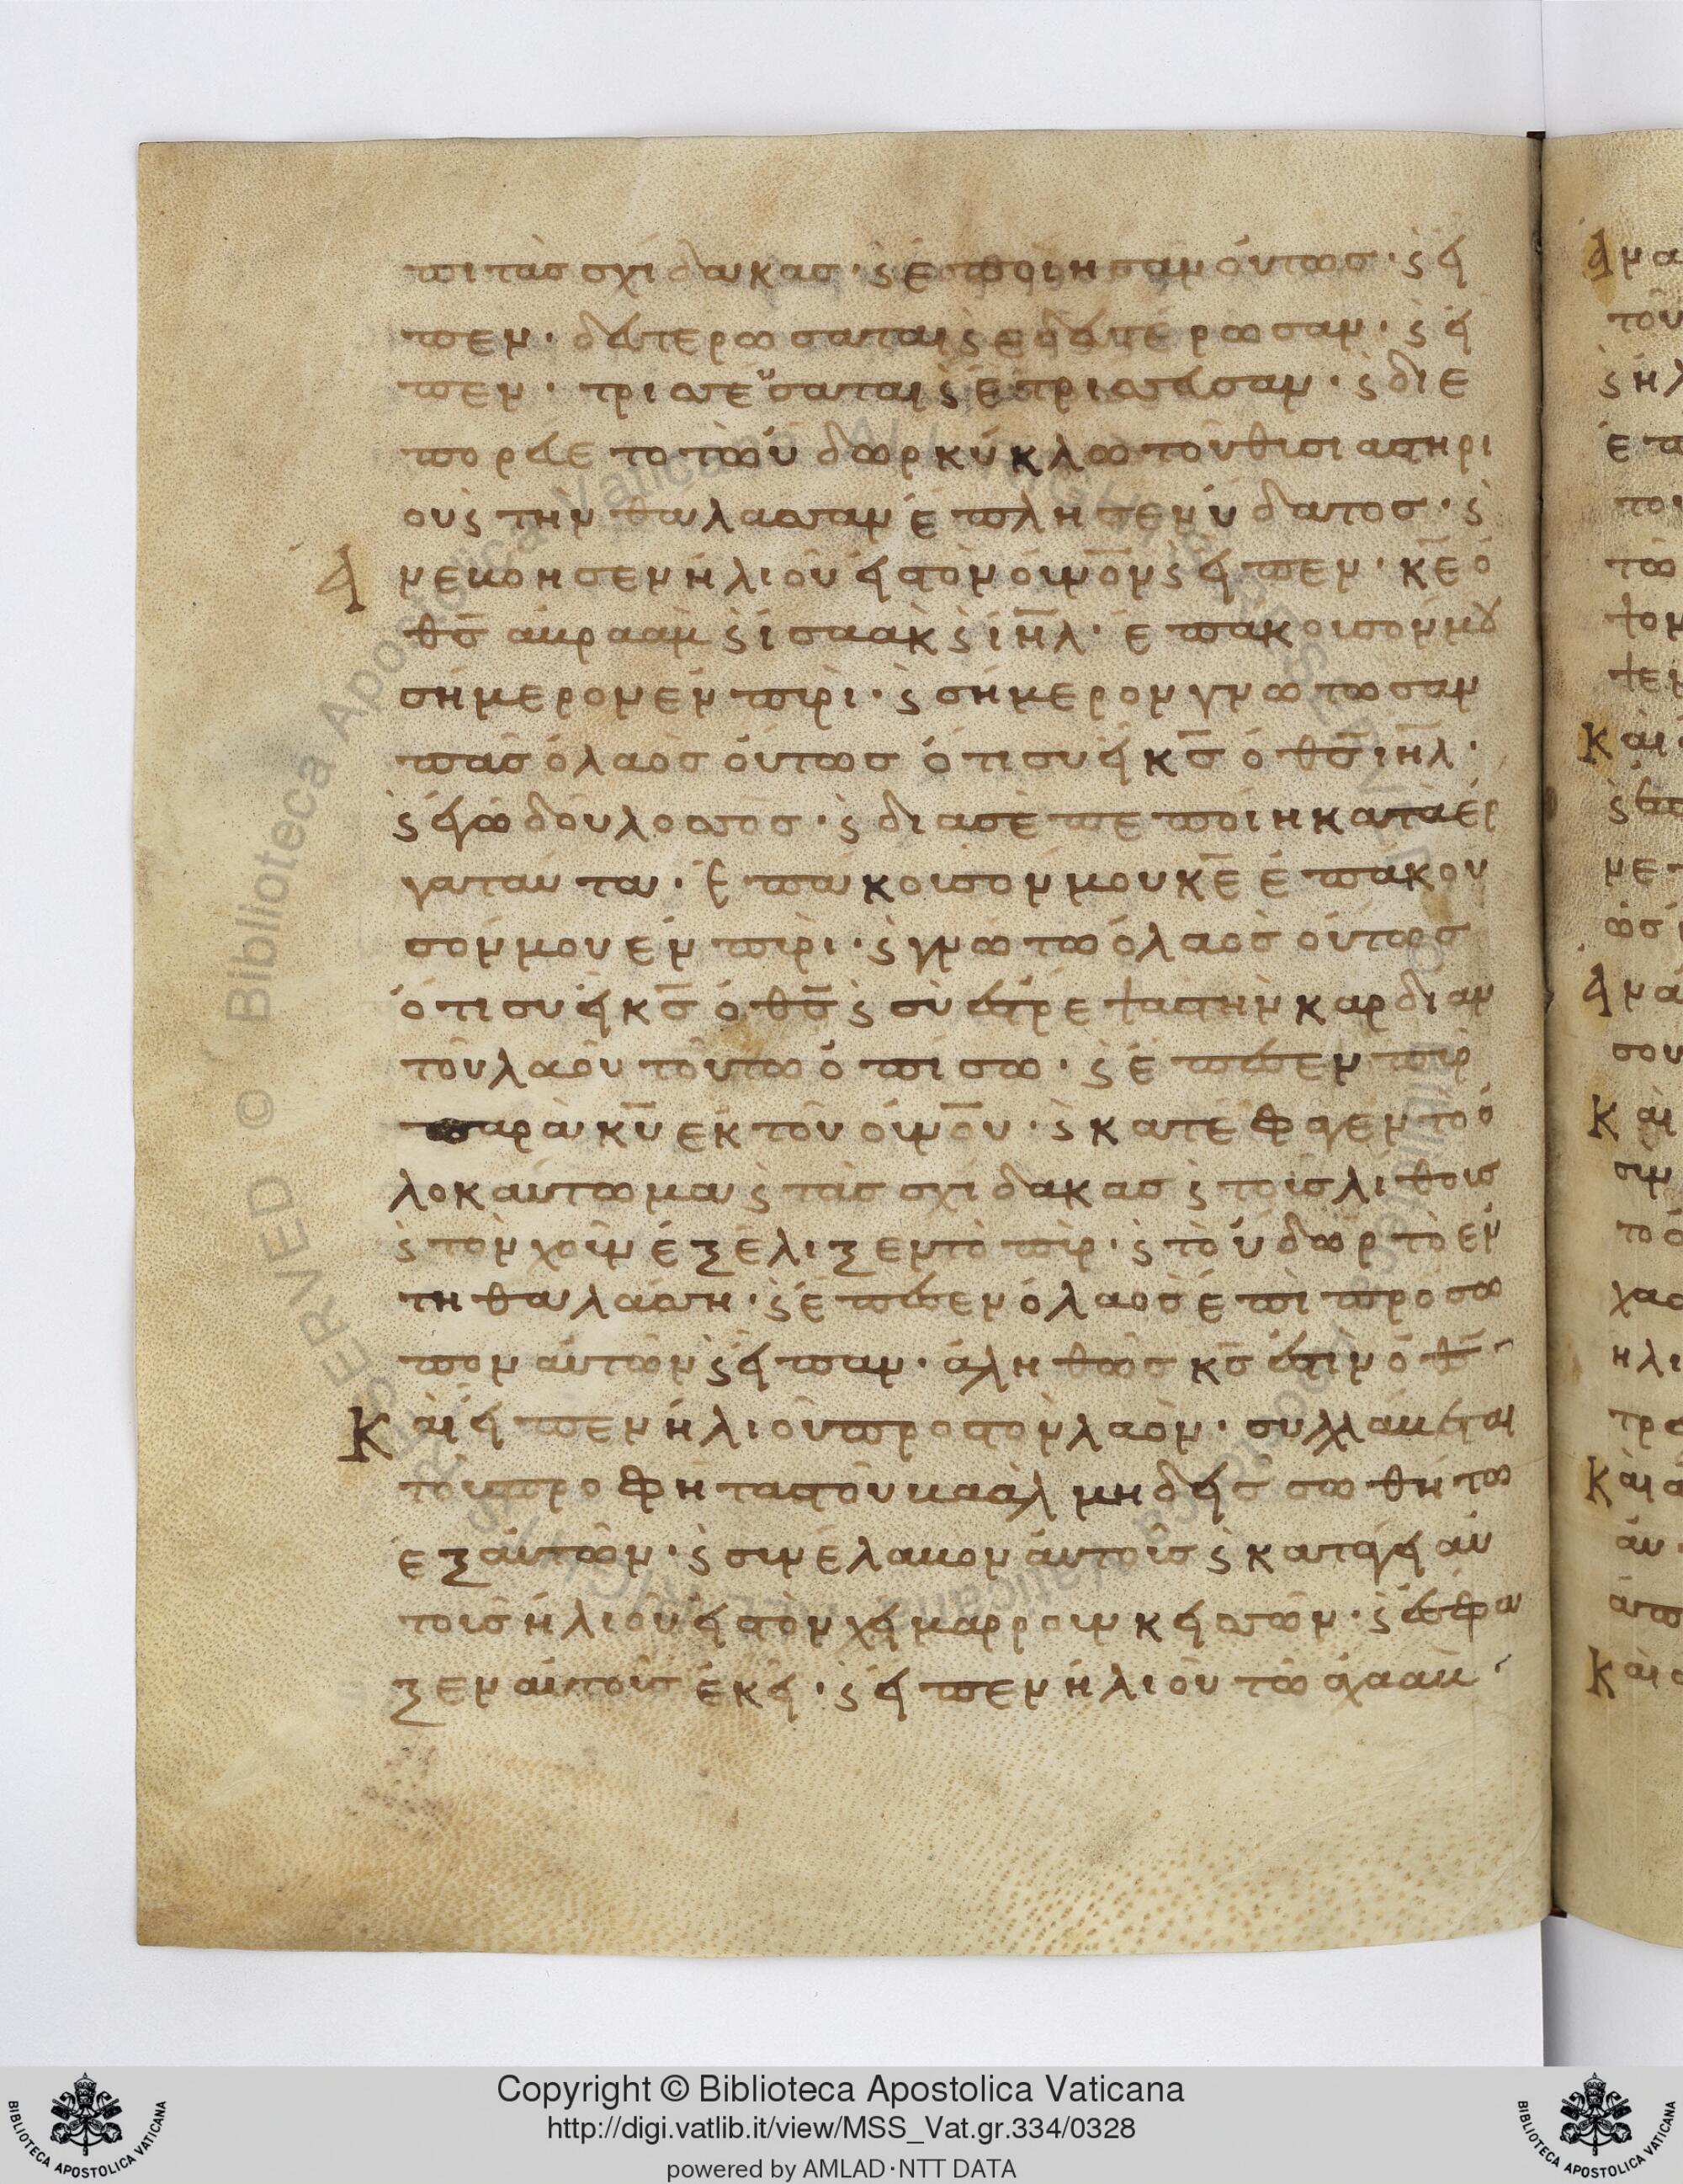 πι τὰς σχίδακας· ϛ ἐποίησαν οὕτως· ϛ εἶ
πεν· δευτερώσαται ϛ ἐδευτέρωσαν· ϛ εἶ
πεν· τρισσεύσαται ϛ ἐτρίσσευσαν· ϛ διε
πορεύετο τὼ ὕδωρ κύκλω τοῦ θυσιαστηρί
ου ϛ τὴν θάλασσαν ἔπλησεν ὕδατος· ϛ
Ἀνεβόησεν ἠλιοῦ εἰς τὸν οὐνον ϛ εἶπεν· κε ὁ
θς ἀβραὰμ ϛ ἰσαὰκ ϛ ιηλ· ἐπάκουσόν μου
σήμερον ἐν πυρὶ· ϛ σήμερον γνώτωσαν
πᾶς ὁ λαὸς οὗτως ὅτι σὺ εἶ κς ὁ θς ιηλ·
ϛ ἐγὼ δοῦλος σὸς· ϛ διὰ σὲ πεποίηκα τὰ ἔρ
γα ταῦτα· Ἐπάκουσόν μου κε ἐπάκου
σόν μου ἐν πυρὶ· ϛ γνώτω ὁ λαὸς οὗτως
ὅτι σὺ εἶ κς ὁ θς ϛ σὺ ἔστρεψας τὴν καρδίαν
τοῦ λαοῦ τούτω ὀπίσω· ϛ ἔπεσεν πῦρ
παρὰ κυ ἐκ τοῦ οὐνου· ϛ κατέφαγεν τὸ ὁ
λοκαύτωμα ϛ τὰς σχίδακας ϛ τοὺς λίθους
ϛ τὸν χοῦν ἐξέλιξεν τὸ πῦρ· ϛ τὸ ὕδωρ τὸ ἐν
τῆ θαλάσση· ϛ ἔπεσεν ὁ λαὸς ἐπὶ πρόσω
πον αὐτῶν ϛ εἶπαν· ἀληθῶς κς ἐστὶν ὁ θς
Καὶ εἶπεν ἠλιοῦ προς τὸν λαὸν· συλλάβεται
τοὺς προφήτας τοῦ βαάλ μηδεὶς σωθήτω
ἐξ αὐτῶν· ϛ συνέλαβον αὐτοὺς ϛ κατάγει αὐ
τοὺς ἠλιοῦ εἰς τὸν χειμαρρουν κεισσῶν· ϛ ἔσφα
ξεν αὐτοὺς ἐκεῖ· ϛ εἶπεν ἠλιοὺ τῶ ἀχαάβ
Copyright © Biblioteca Apostolica Vaticana
http://digi.vatlib.it/view/MSS_Vat.gr.334/0328
powered by AMLAD·NTT DATA
BIBLIOTECA APOSTOLICA VATICANA
BIBLIOTECA APOSTOLICA VATICANA